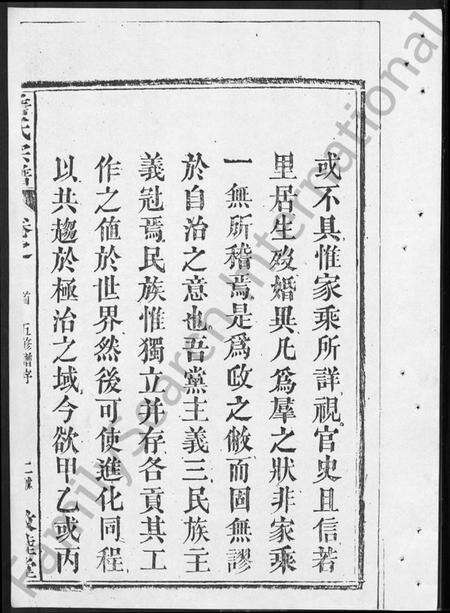 或不具惟家乘所詳視官史且信若
里居生歿婚異凡爲羣之狀非家乘
一無所稽焉是爲政之敝而固無謬
於自治之意也吾黨主義三民族主
義冠焉民族惟獨立并存各貢其工
作之值於世界然後可使進化同程
以共趨於極治之域今欲甲乙或丙
氏宗譜 卷之 首 五修譜序 堂
FamilySearch International